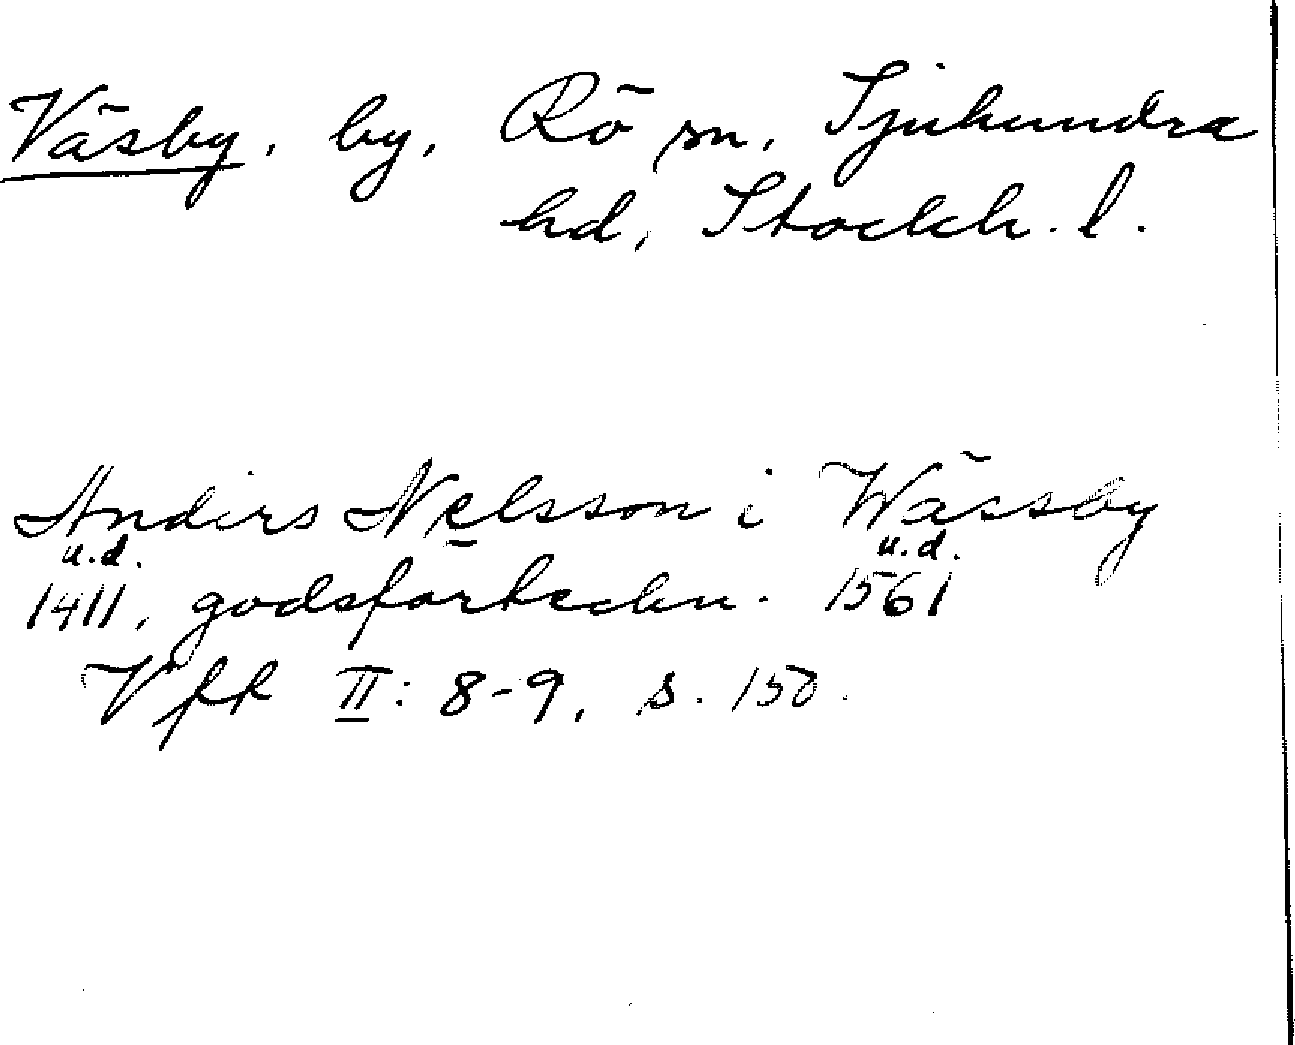 Väsby, by, Rö sn, Sjuhundra
hd, Stockh. l.
Anders Nelsson i Wässby
u.d. u.d.
1411, godsförteckn. 1561
Vff II: 8-9, s. 150.